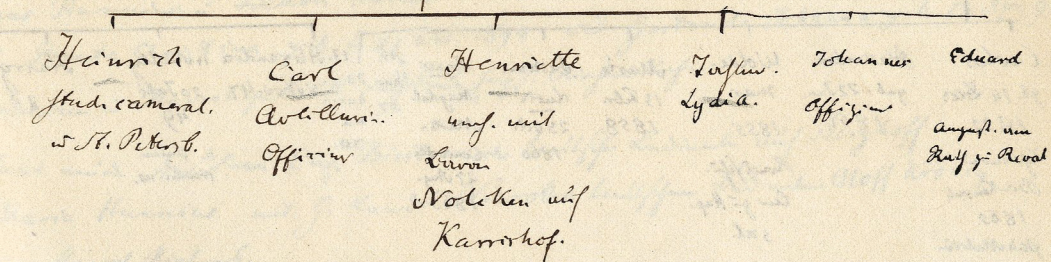 Heinrich
stud. cameral.
in St. Petersb.
Carl
Artillerie-
Offizier
Henriette
mit
Baron
Nolcken auf
Karrishof.
Lydia.
Johannes
Offizier
Eduard
August. am
Rath zu Reval